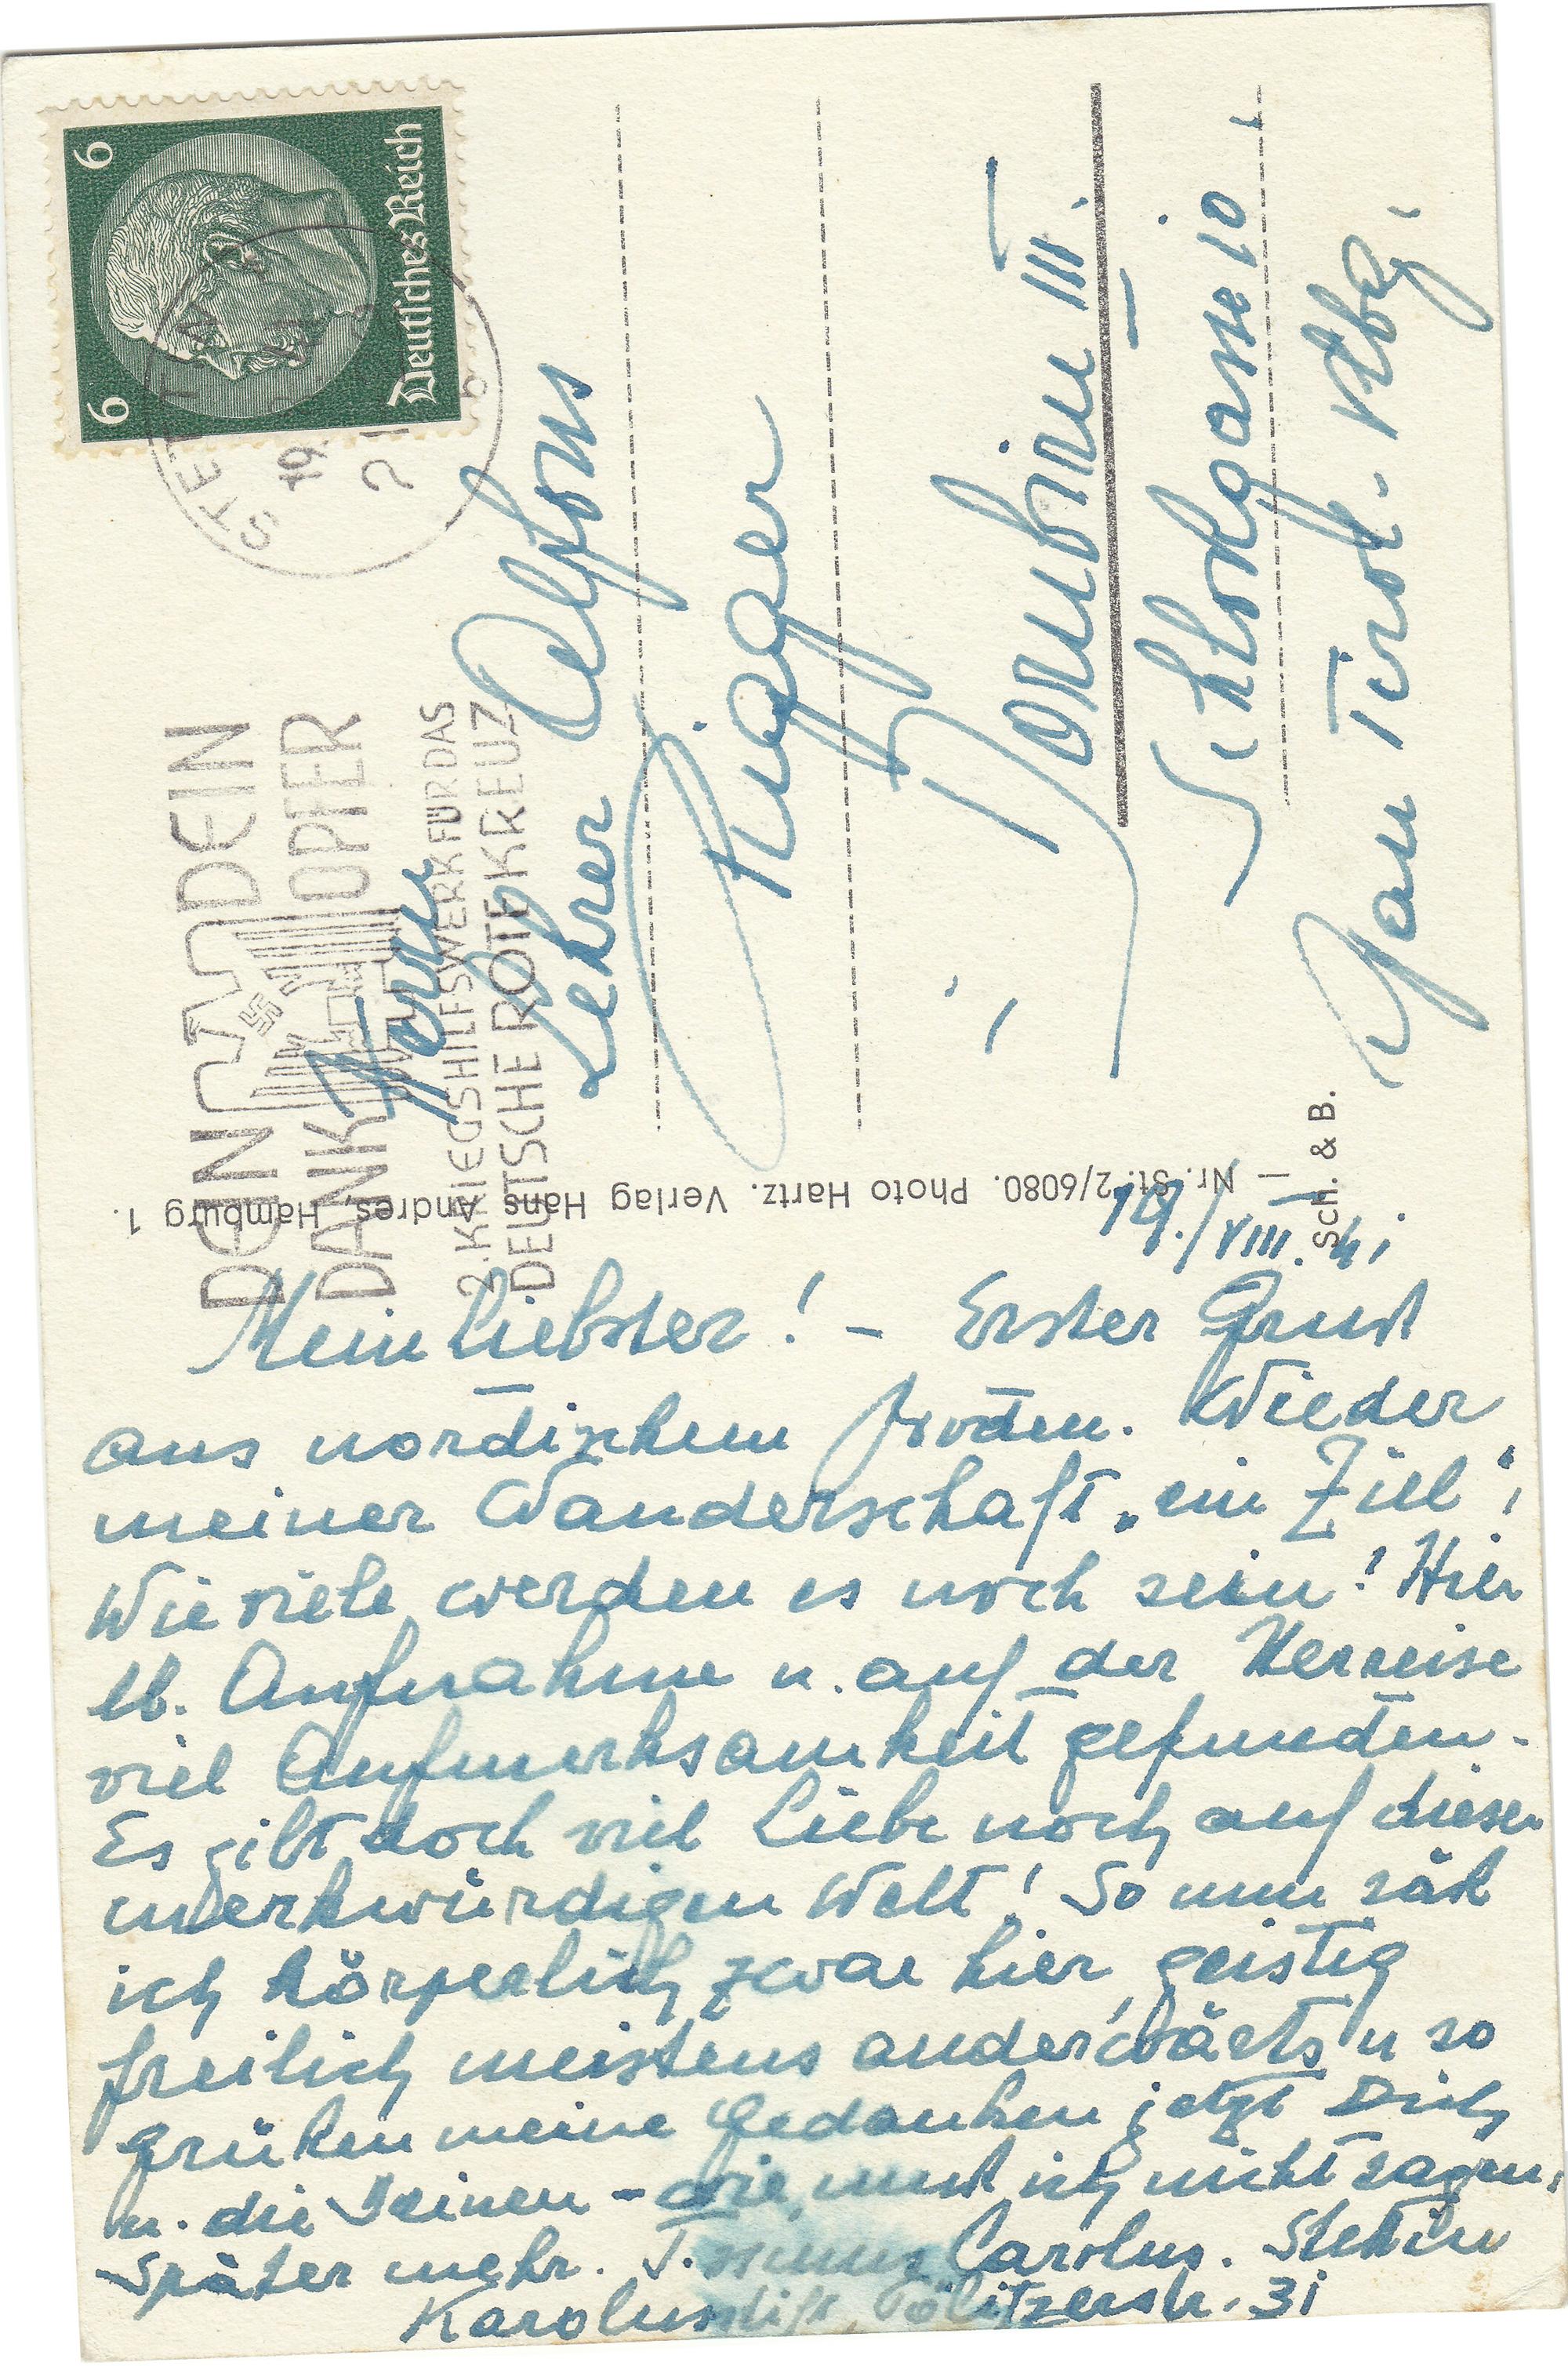 19./VIII. 41
Mein Liebster! – Erster Gruß
aus nordischem Boden. Wieder
meiner Wanderschaft „ein Ziel“;
Wie viele werden es noch sein! Hier
lb. Aufnahme u. auf der Herreise
viel Aufmerksamkeit gefunden.
Es gibt doch viel Liebe noch auf dieser
merkwürdigen Welt! So nun säß
ich körperlich zwar hier, geistig
freilich meistens anderwärts u so
grüßen meine Gedanken jetzt Dich
u. die Deinen – wie, muß ich nicht sagen,
Später mehr. Carolus. Stettin
Karolusstift, Pölitzerstr. 31
Nr. St. 2/6080. Photo Hartz. Verlag Hans Andres, Hamburg 1.
Sch. & B.
DEIN DEIN
DANK OPFER
2. KRIEGSHILFSWERK FÜR DAS
DEUTSCHE ROTE KREUZ
6 6
Deutsches Reich
STETTIN
19.
Herrn
Lehrer Alfons
Rigger
Dornbirn III.
Schloßgasse 10
Gau Tirol-Vtbg.